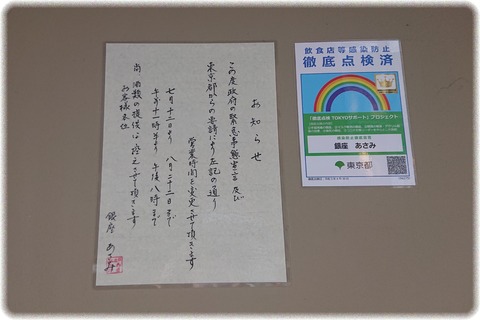 お知らせ
この度政府の緊急事態宣言及び
東京都からの要請により左記の通り
営業時間を変更させて頂きます
七月十二日より 八月二十二日まで
午前十一時半より 午後八時まで
尚 酒類の提供は控えさせて頂きます
お客様各位
銀座 あさみ
飲食店等感染防止
徹底点検済
「徹底点検 TOKYOサポート」プロジェクト
銀座 あさみ
東京都